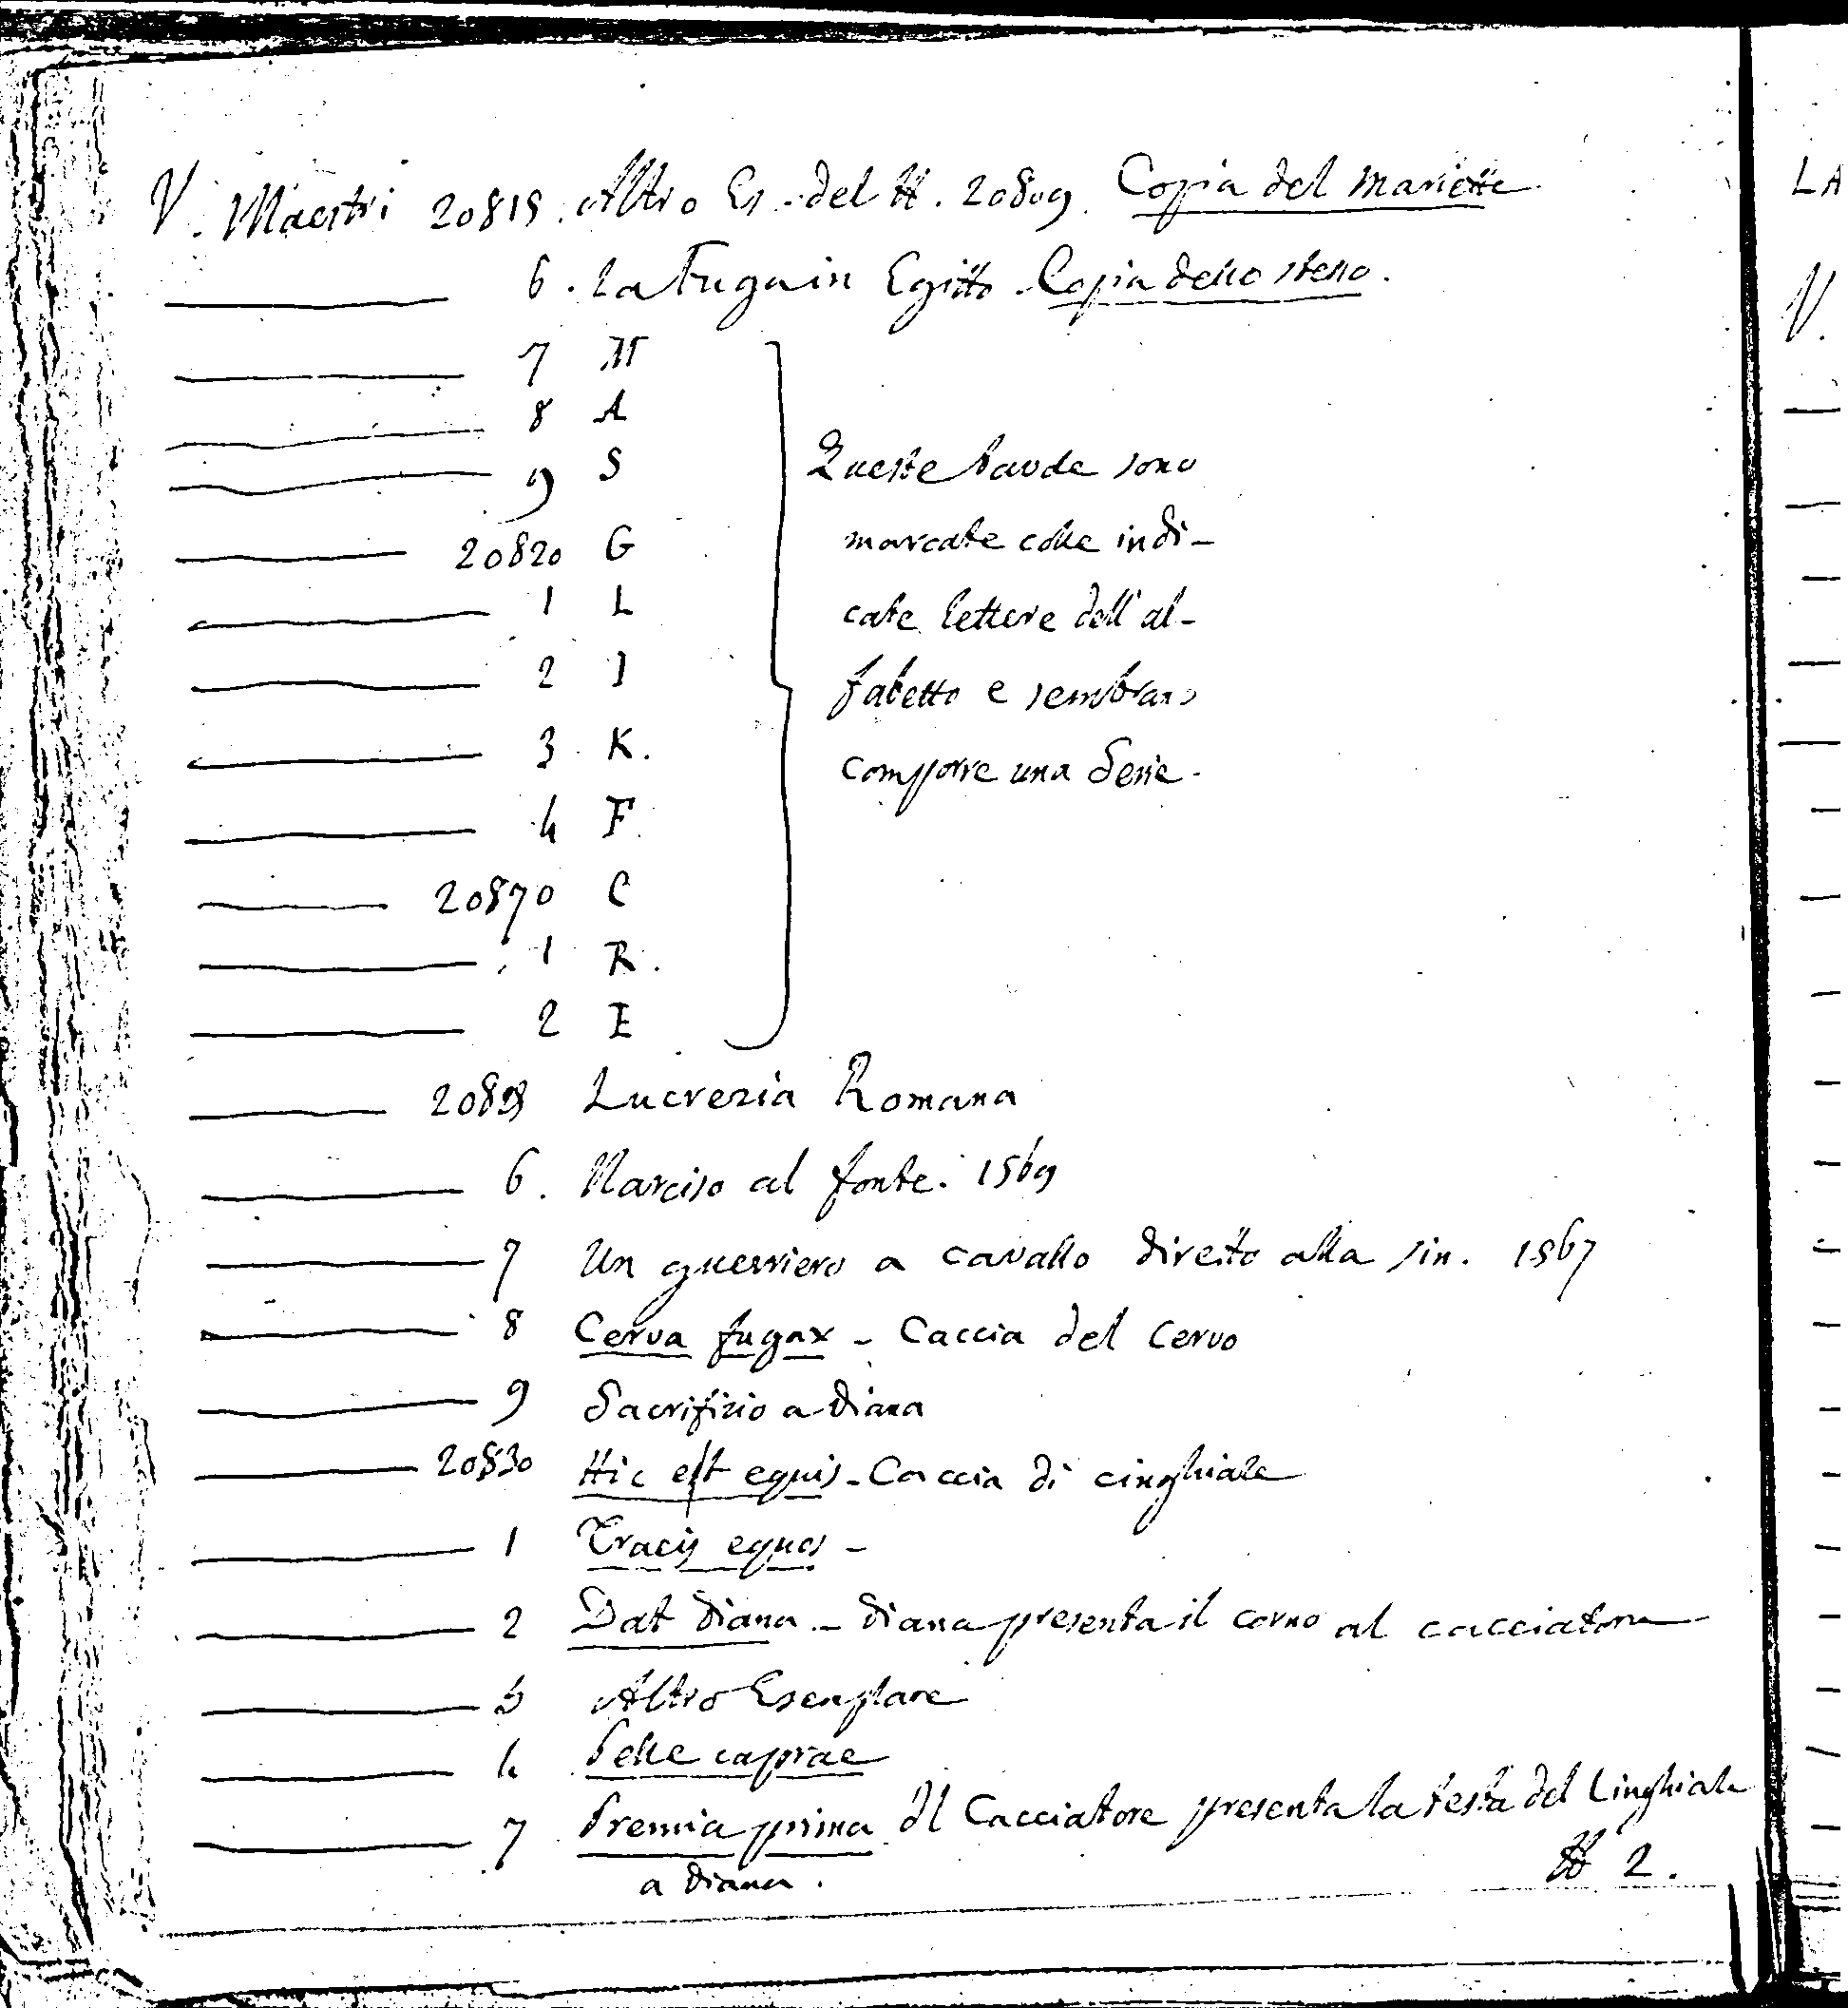 V. Maestri 20815. Altro Es. del N. 20809. Copia del Mariette
6. La Fuga in Egitto. Copia dello stesso.
7 M
8 A
9 S
20820 G
1 L
2 I
3 K.
4 F.
20870 C
1 R.
2 E
Queste tavole sono
marcate colle indi-
cate lettere dell'al-
fabetto e sembrano
comporre una Serie.
Lucrezia Romana
6. Narciso al fonte. 1569
7 Un guerriero a cavallo diretto alla sin. 1567
8 Cerva fugax - Caccia del Cervo
9 Sacrifizio a Diana
20830 Hic est equis - Caccia di cinghiale
1 Tracij equos -
2 Dat Diana - Diana presenta il corno al cacciatore
3 Altro Esemplare
4 Pelle caprae
7 Premia prima Il Cacciatore presenta la testa del Cinghiale
a Diana.
N 2.
LA
V.